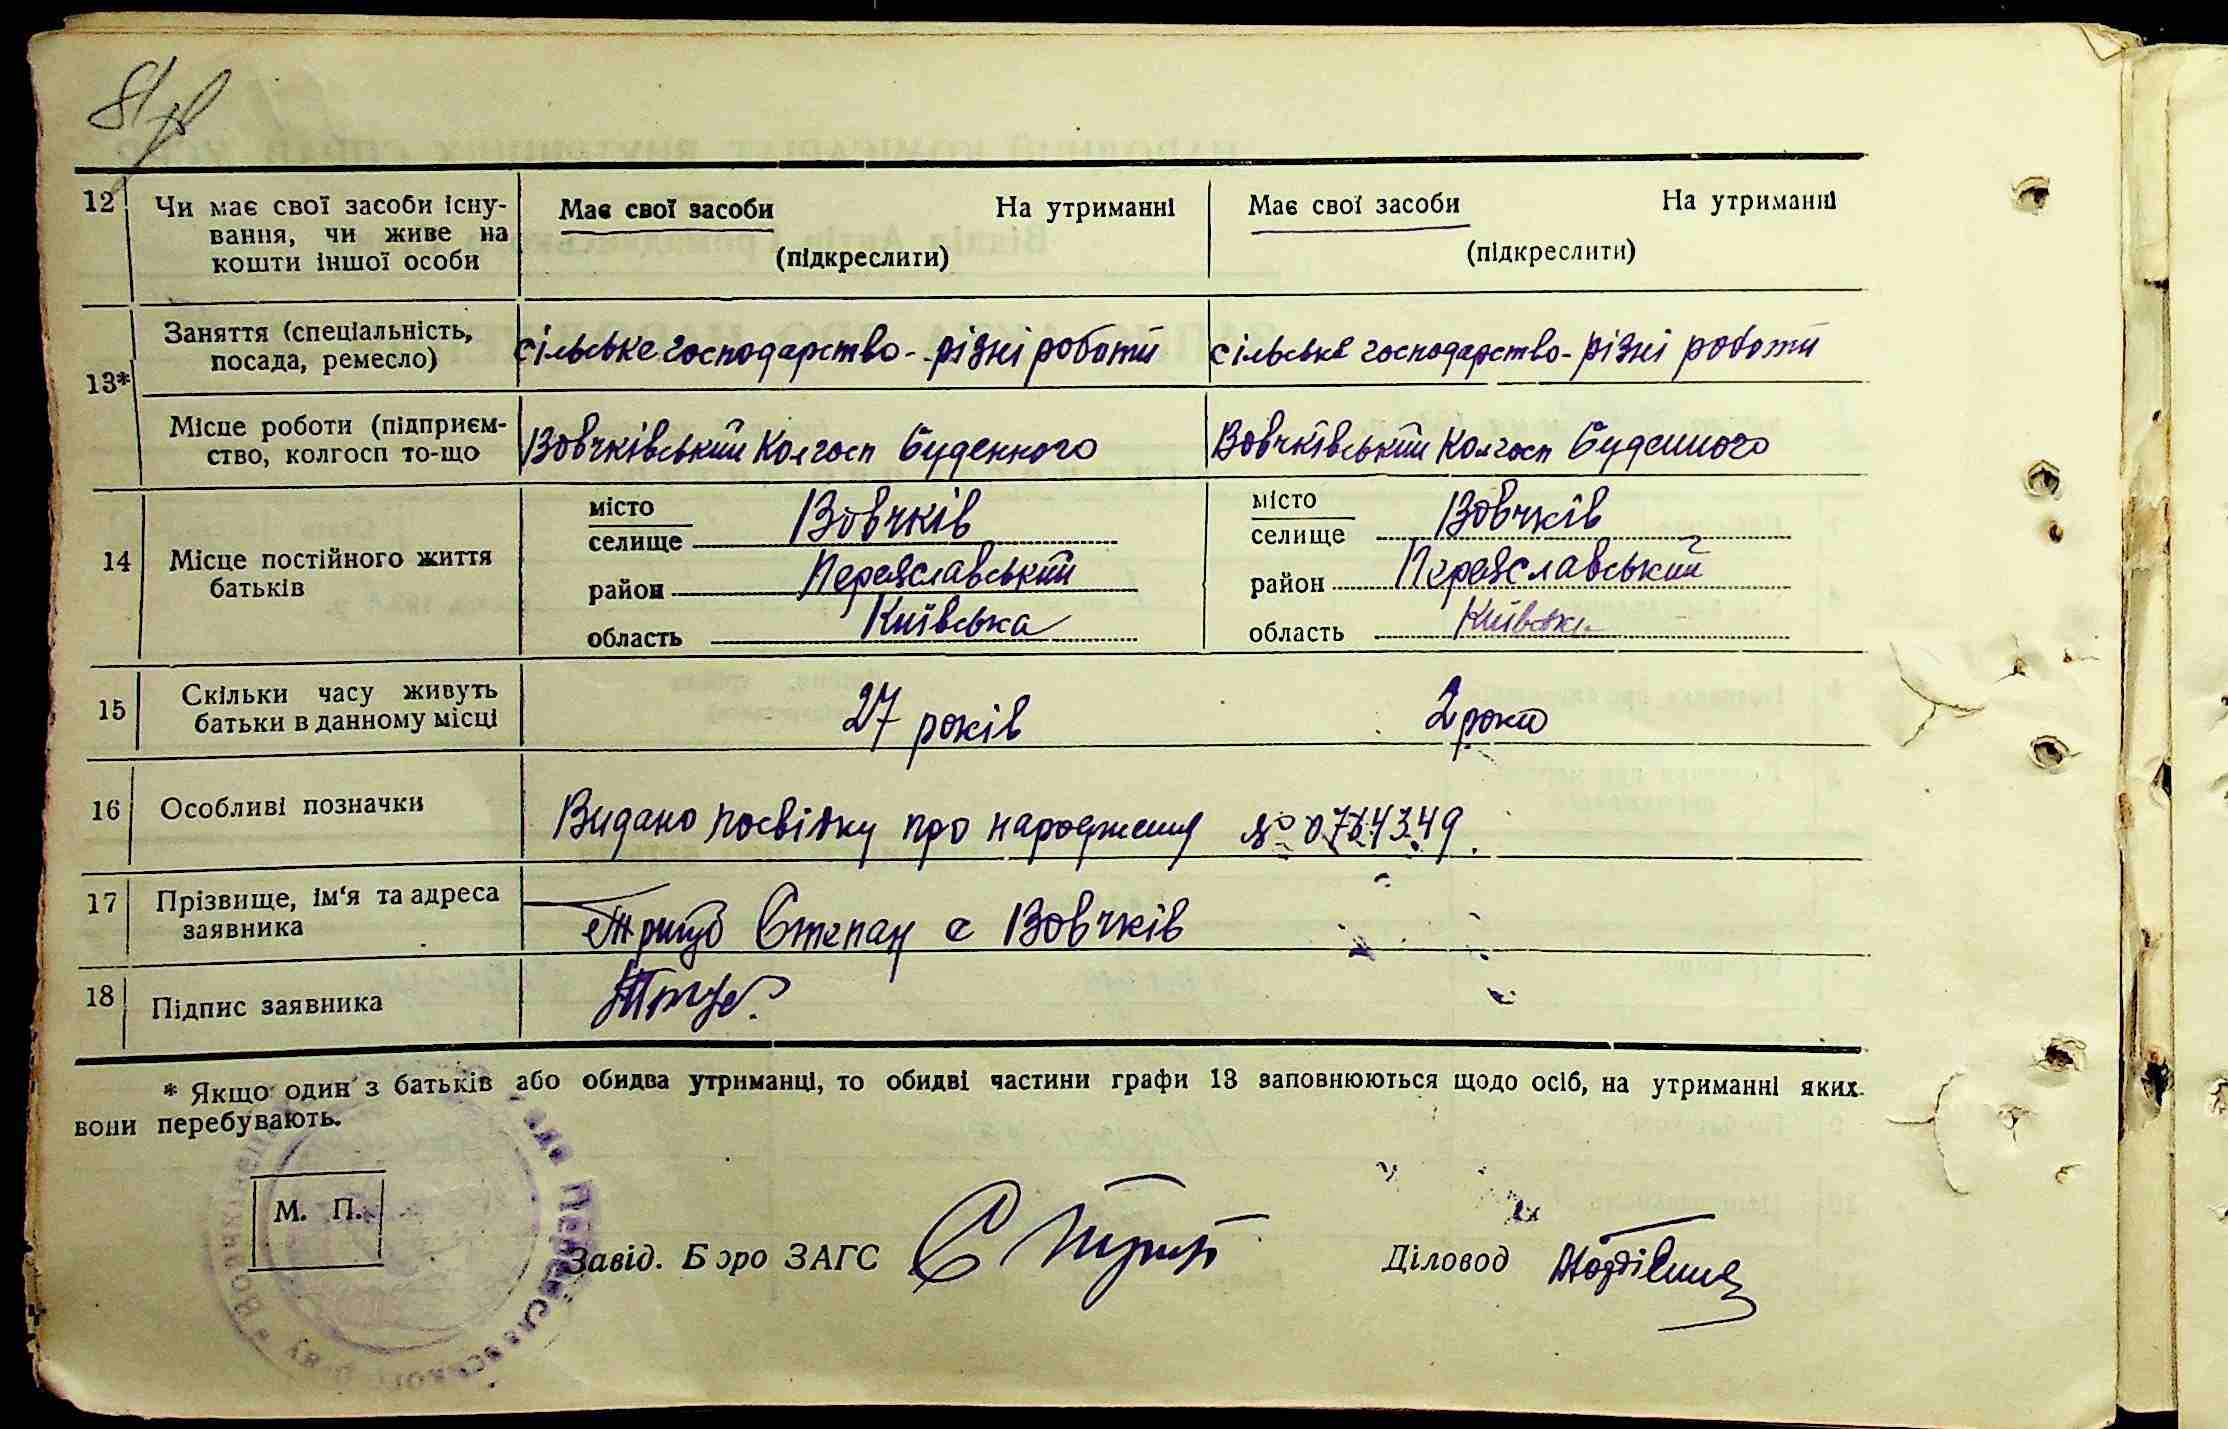 12 Чи має свої засоби існу-
вання, чи живе на
кошти іншої особи
Має свої засоби На утриманні
(підкреслити)
Має свої засоби На утриманні
(підкреслити)
13*
Заняття (спеціальність,
посада, ремесло)
сільське господарство - різні роботи
сільське господарство - різні роботи
Місце роботи (підприєм-
ство, колгосп то-що
Вовчківський Колгосп Буденного
Вовчківський Колгосп Буденного
14 Місце постійного життя
батьків
місто
селище Вовчків
район Переяславський
область Київська
місто
селище Вовчків
район Переяславський
область Київська
15 Скільки часу живуть
батьки в данному місці
27 років
2 роки
16 Особливі позначки
Видано посвідку про народження №
17 Прізвище, ім'я та адреса
заявника
Степан с Вовчків
18 Підпис заявника
* Якщо один з батьків або обидва утриманці, то обидві частини графи 13 заповнюються щодо осіб, на утриманні яких
вони перебувають.
М. П.
Завід. Бюро ЗАГС
Діловод